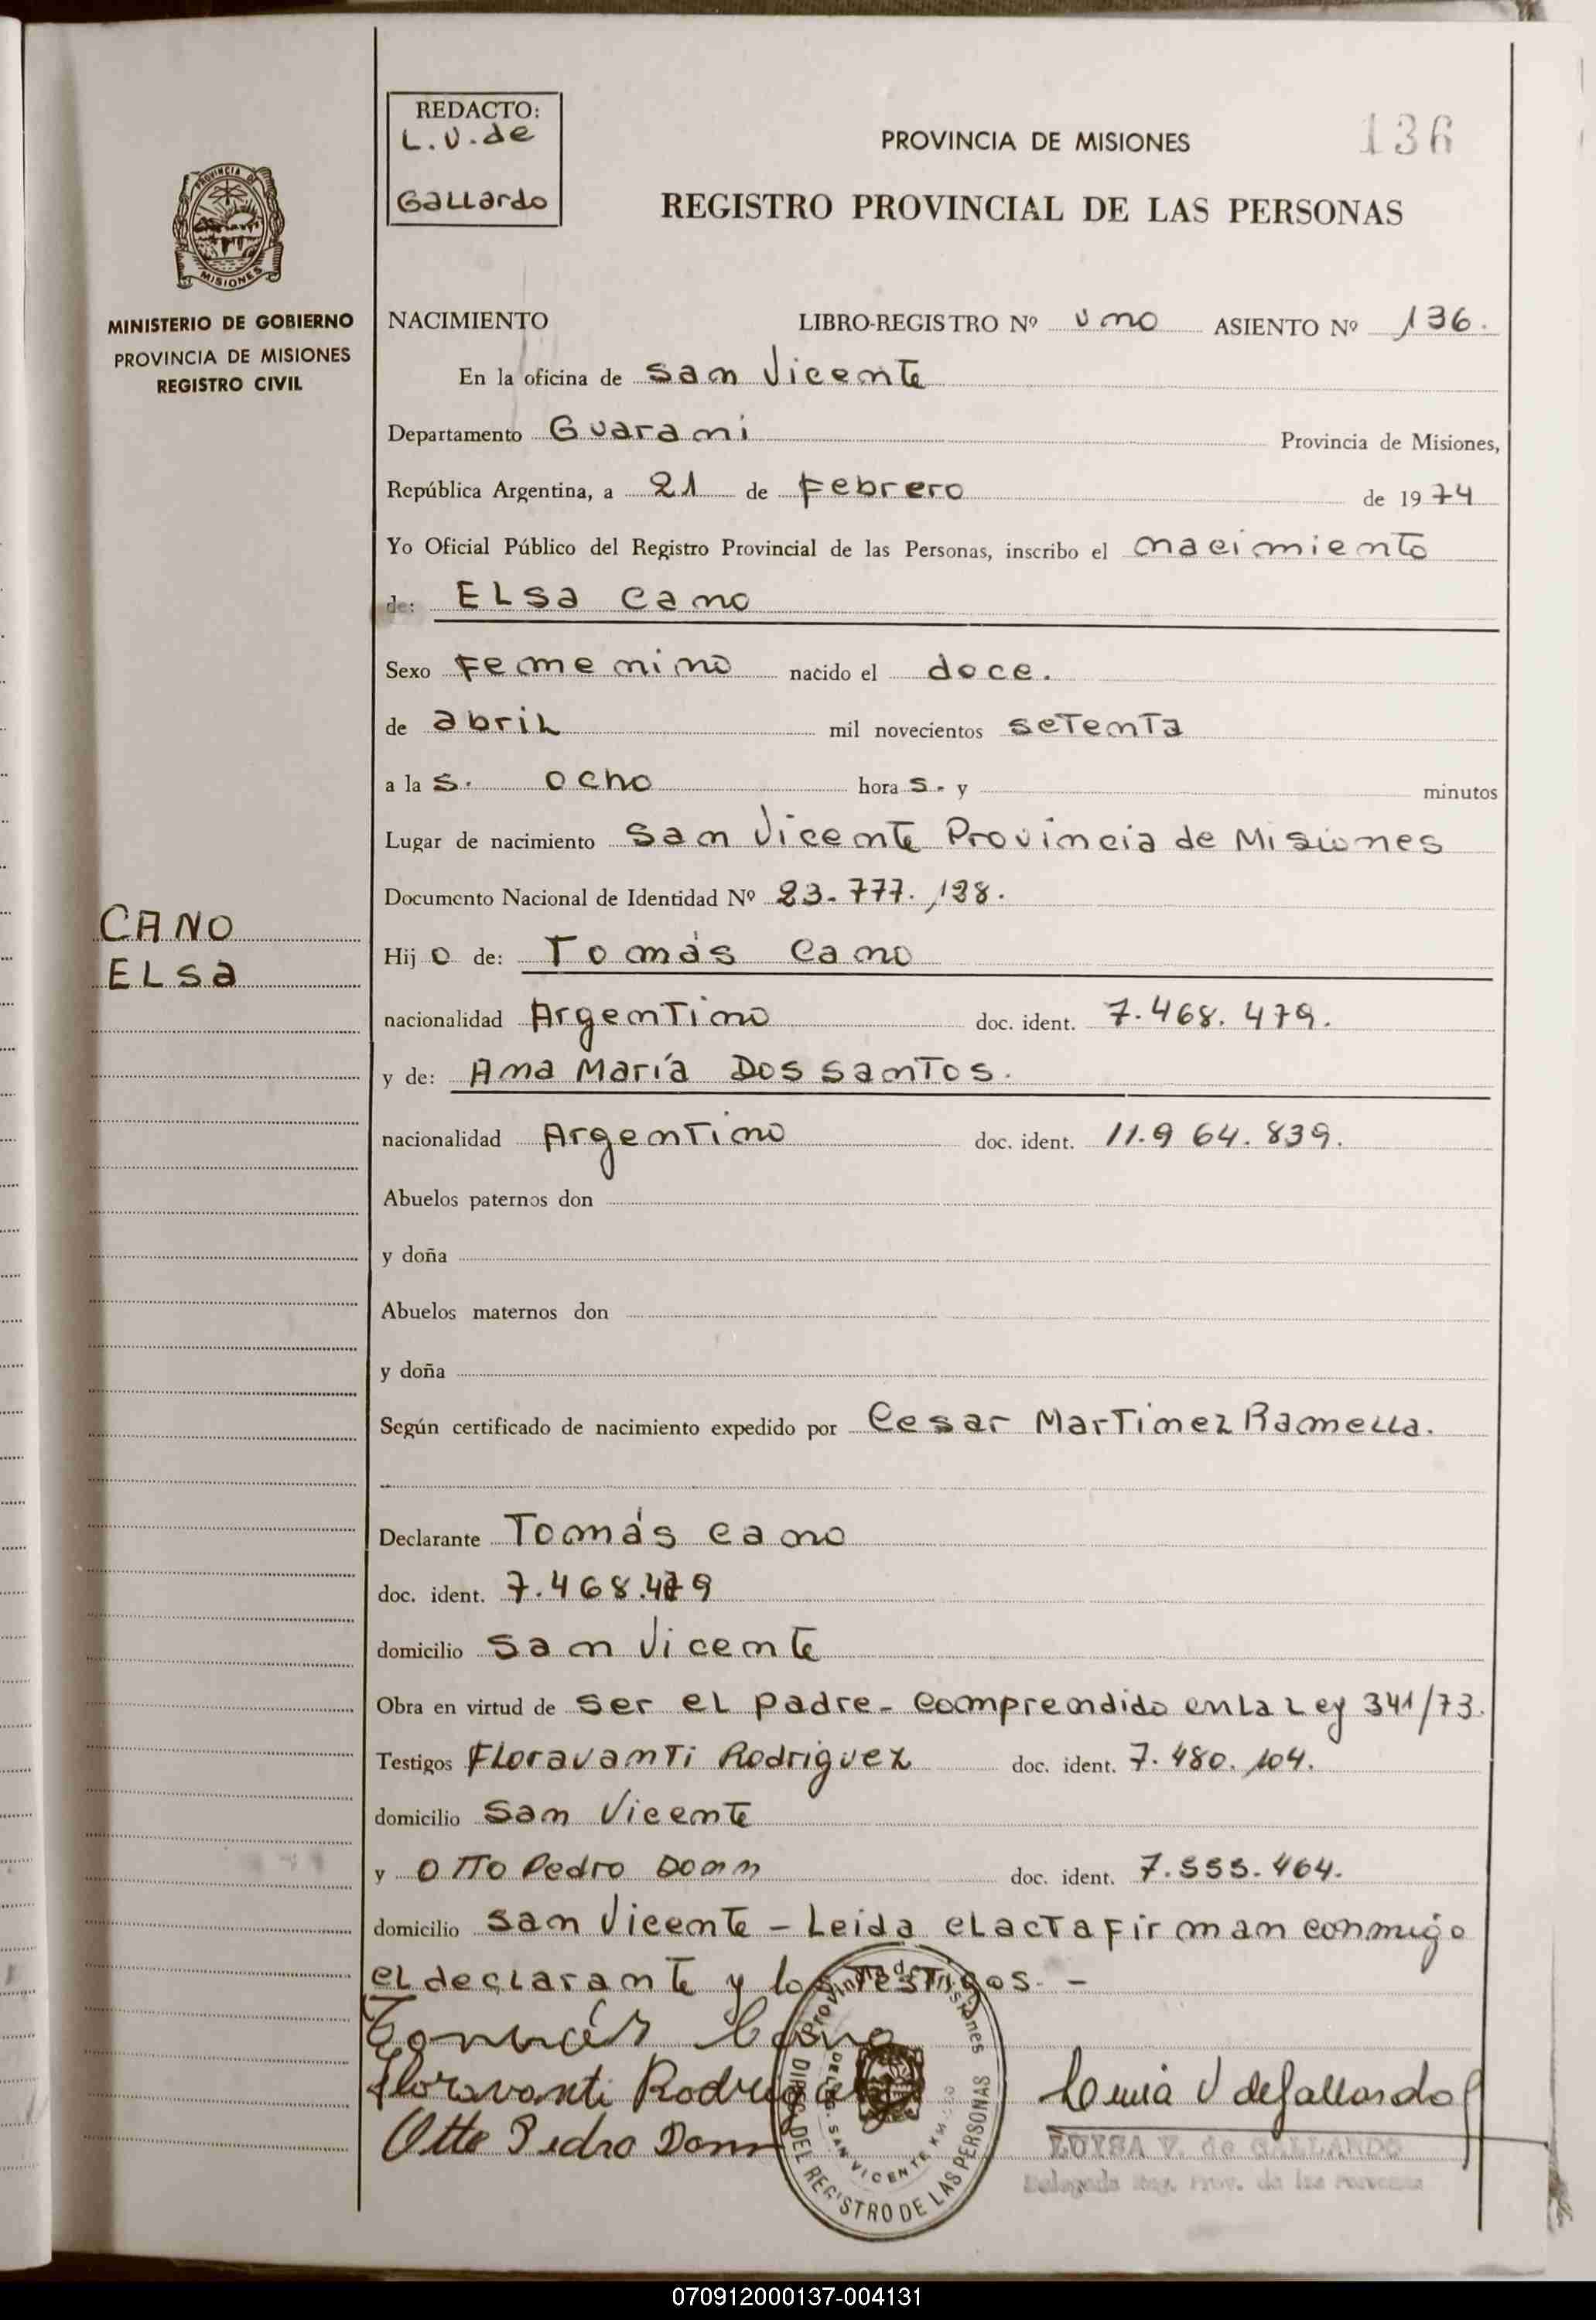 REDACTO:
L.V.de
Gallardo
PROVINCIA DE MISIONES
136
REGISTRO PROVINCIAL DE LAS PERSONAS
PROVINCIA DE
MISIONES
MINISTERIO DE GOBIERNO
PROVINCIA DE MISIONES
REGISTRO CIVIL
NACIMIENTO LIBRO-REGISTRO Nº uno ASIENTO Nº 136.
En la oficina de San Vicente
Departamento Guarani Provincia de Misiones,
República Argentina, a 21 de Febrero de 1974
Yo Oficial Público del Registro Provincial de las Personas, inscribo el nacimiento
de: ELsa Cano
Sexo Femenino nacido el doce.
de abril mil novecientos setenta
a las. ocho horas.- y minutos
Lugar de nacimiento San Vicente Provincia de Misiones
Documento Nacional de Identidad Nº 23.777.138.
CANO
ELsa
Hijo de: Tomás Cano
nacionalidad Argentino doc. ident. 7.468.479.
y de: Ana María Dos Santos.
nacionalidad Argentino doc. ident. 11.964.839.
Abuelos paternos don
y doña
Abuelos maternos don
y doña
Según certificado de nacimiento expedido por Cesar Martinez Ramella.
Declarante Tomás Cano
doc. ident. 7.468.479
domicilio San Vicente
Obra en virtud de ser el padre- comprendido en la Ley 341/73.
Testigos Floravanti Rodriguez doc. ident. 7.480.104.
domicilio San Vicente
y Otto Pedro Donn doc. ident. 7.555.464.
domicilio San Vicente - Leida el acta firman conmigo
el declarante y los testigos. -
Tomás Cano
Floravanti Rodriguez
Otto Pedro Donn
Provincia de Misiones
DIREC. DEL REGISTRO DE LAS PERSONAS
SAN VICENTE
Luisa V de Gallardo
LUISA V. de GALLARDO
Delegada Reg. Prov. de las Personas
070912000137-004131